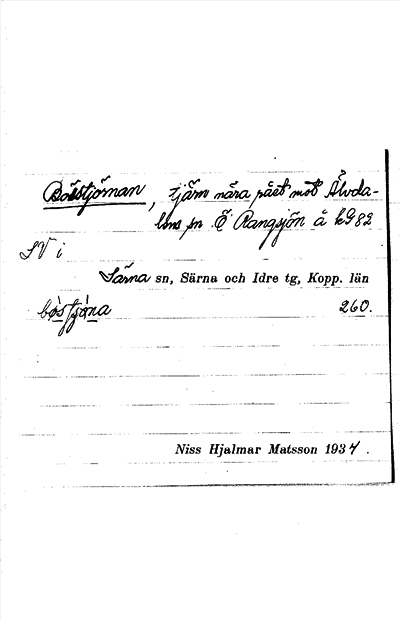 Bösstjörnan, tjärn nära råct mot Älvda-
lens sn Ö Rangsjön å kG82
SV i
Särna sn, Särna och Idre tg, Kopp. län
260.
Niss Hjalmar Matsson 1934.